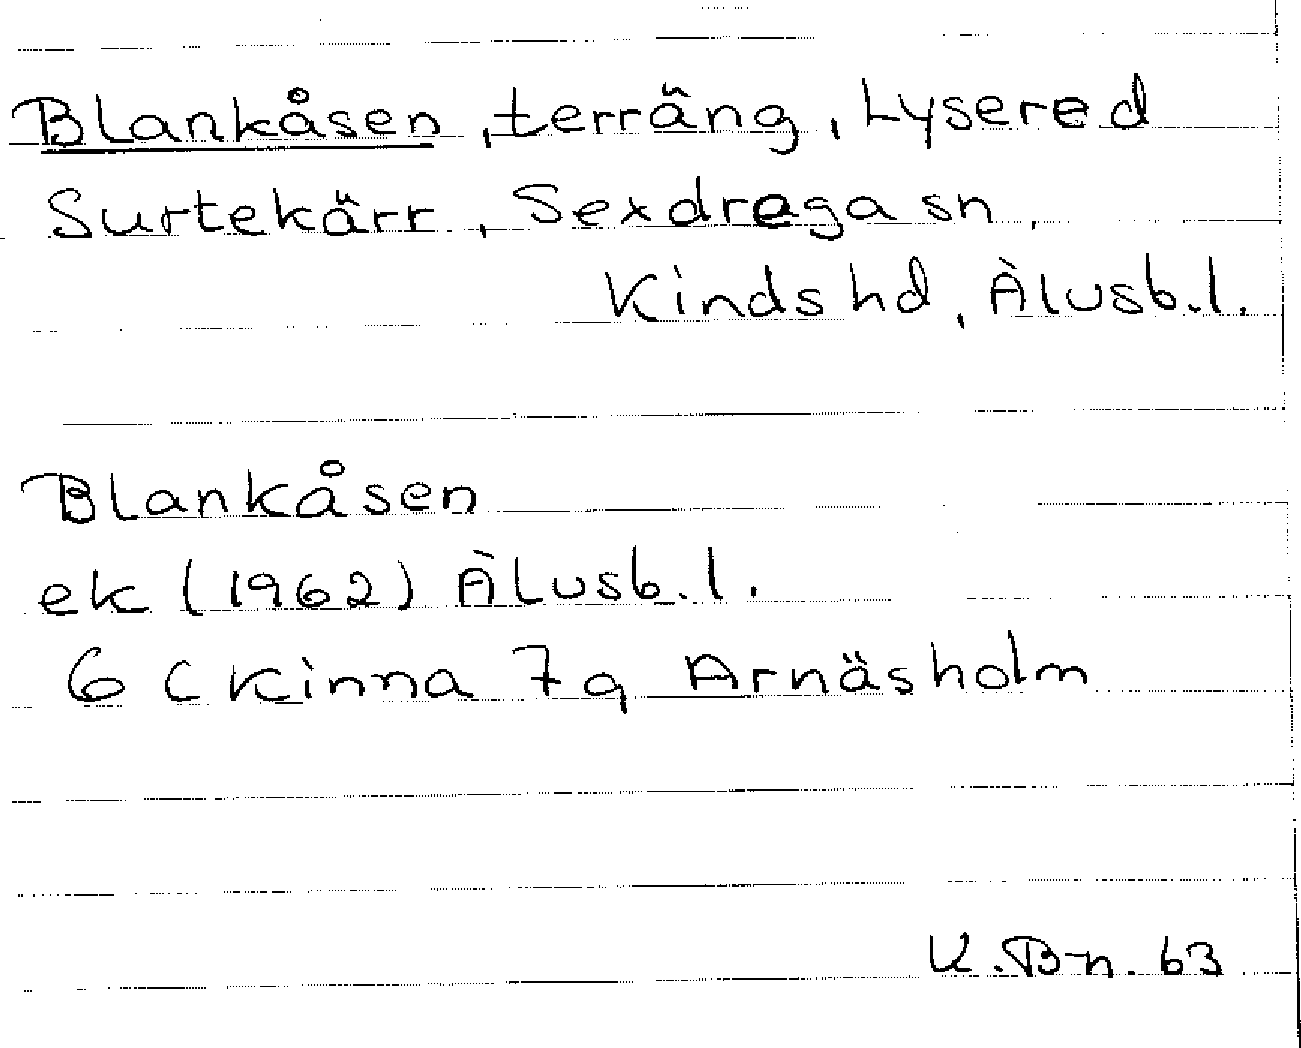 Blankåsen, terräng, Lysered
Surtekärr, Sexdrega sn,
Kinds hd, Älvsb.l.
Blankåsen
ek (1962) Älvsb.l.
6 C Kinna 7g Arnäsholm
K.B-n. 63